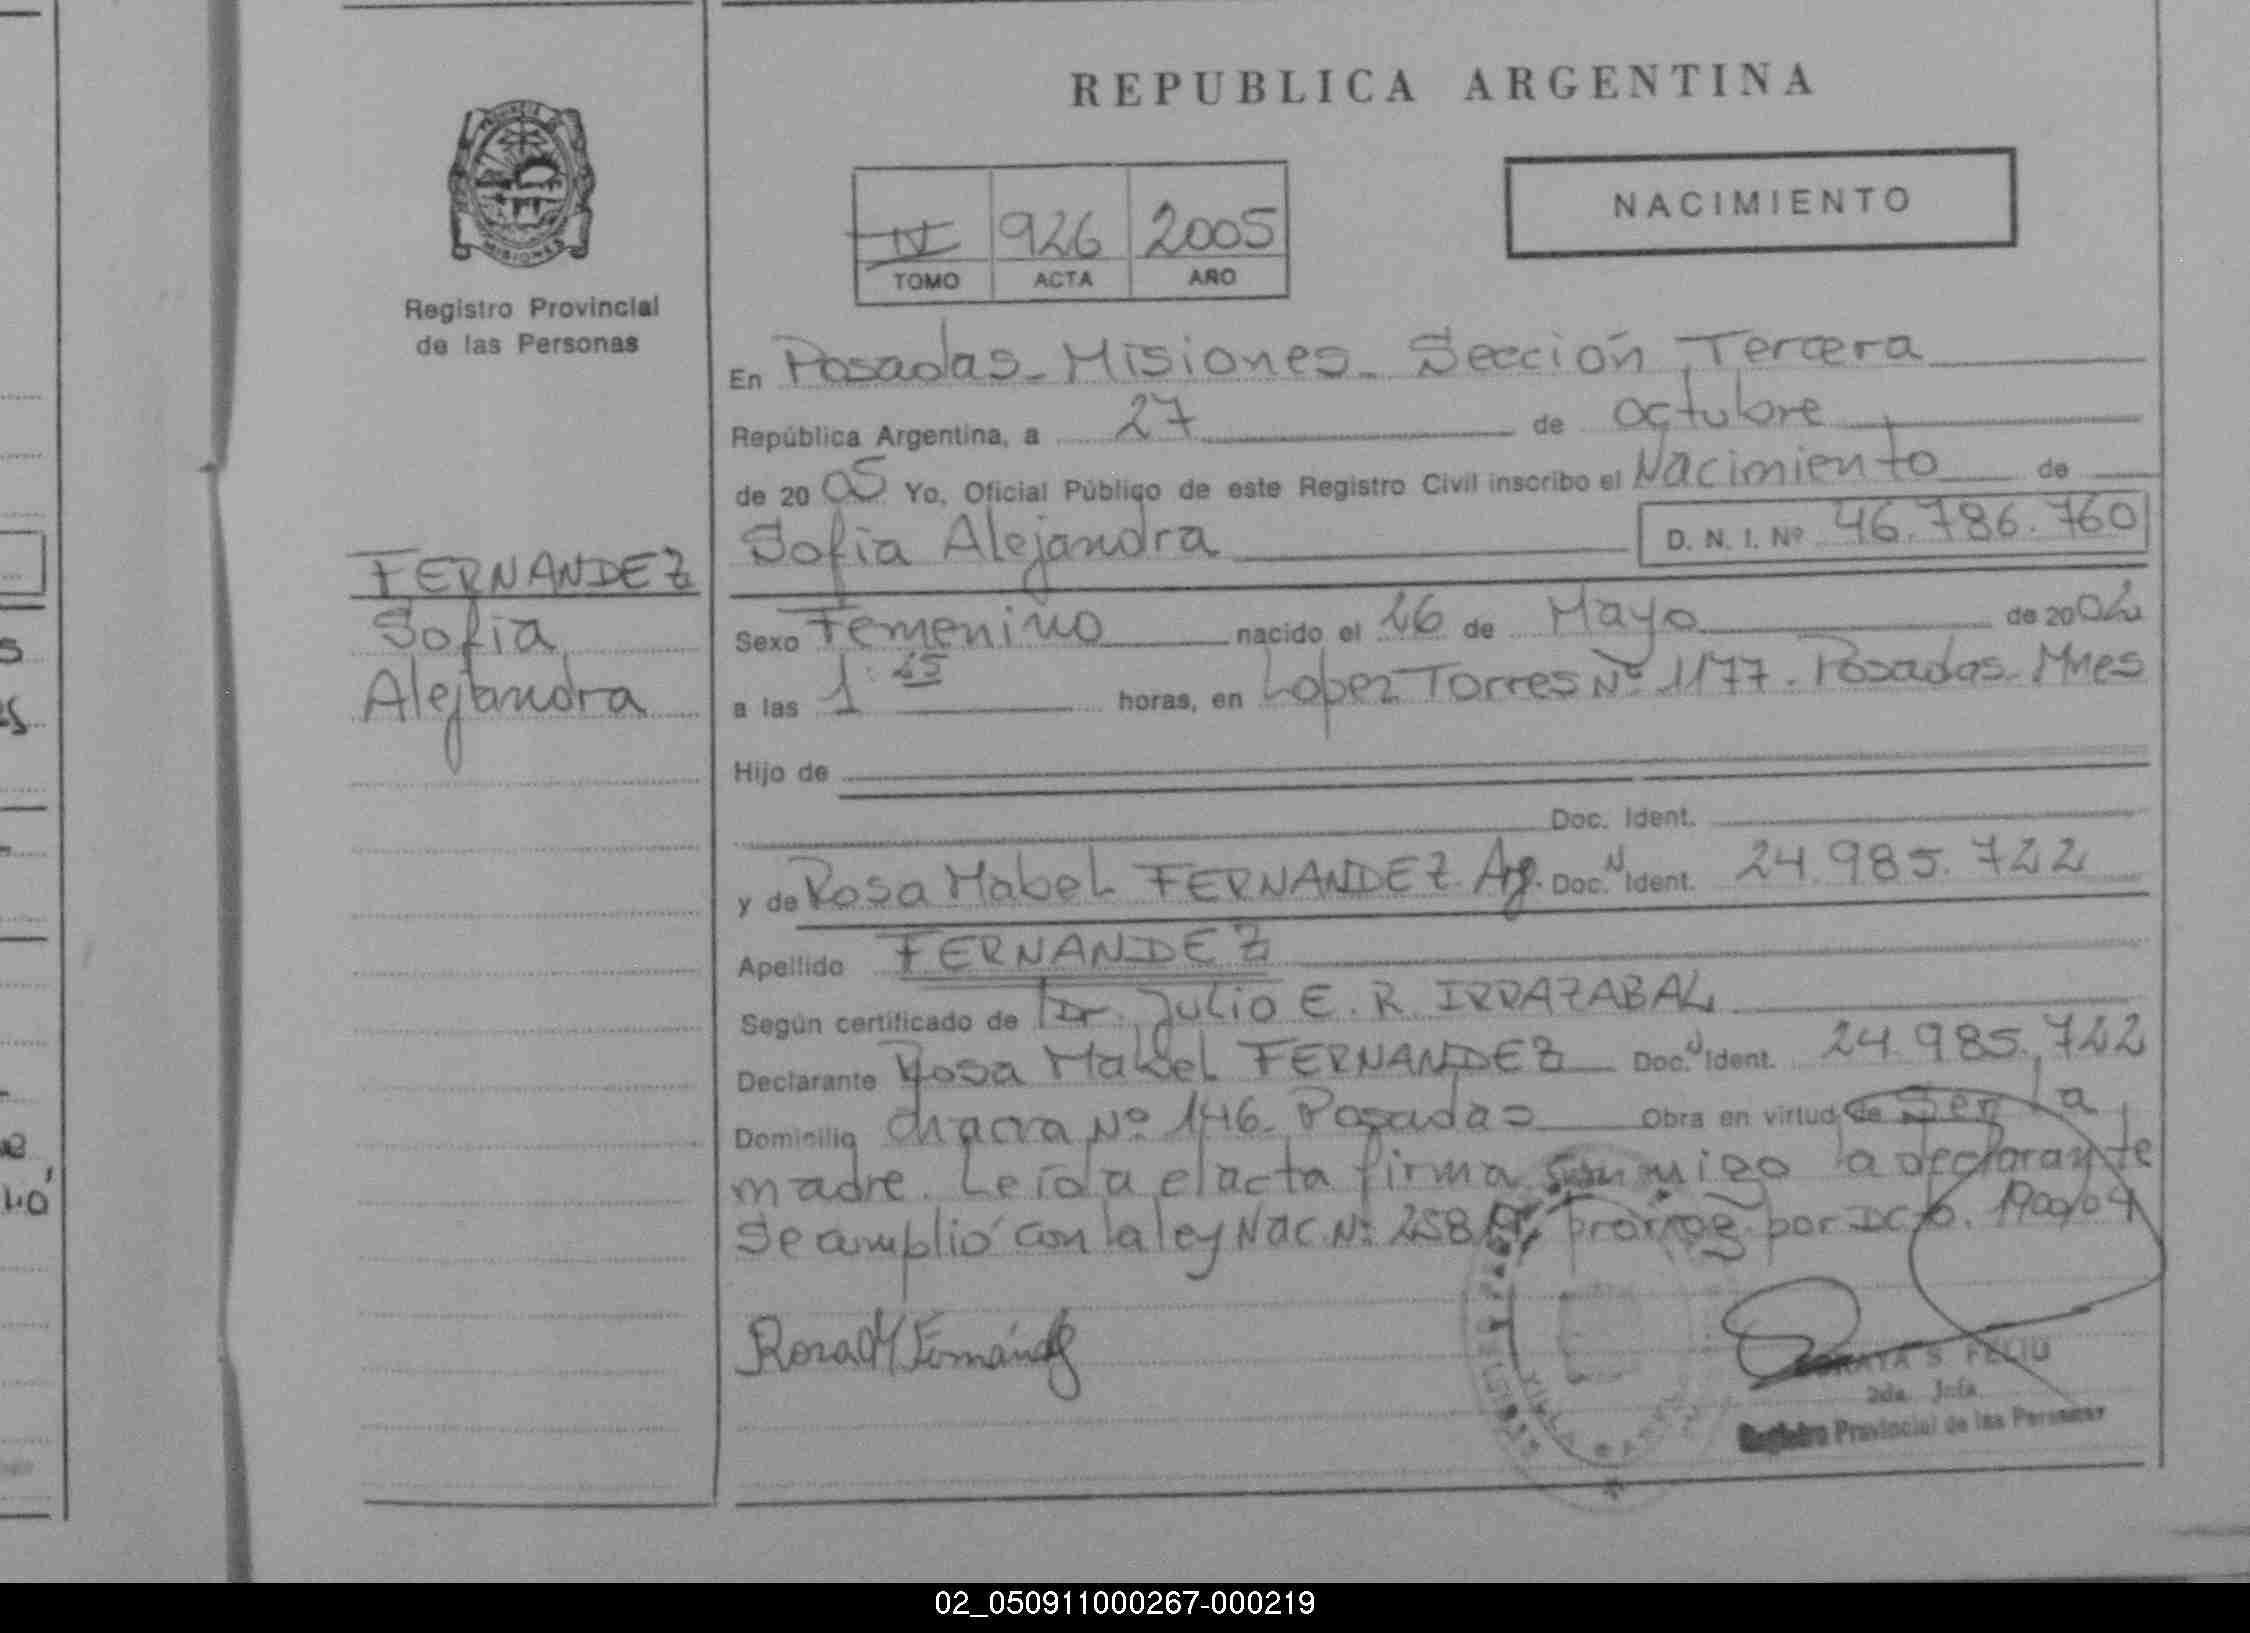 REPUBLICA ARGENTINA
PROVINCIA
MISIONES
NACIMIENTO
IV 926 2005
TOMO ACTA AÑO
Registro Provincial
de las Personas
En Posadas - Misiones - Sección Tercera
República Argentina, a 27 de octubre
de 2005 Yo, Oficial Público de este Registro Civil inscribo el Nacimiento de
Sofia Alejandra D. N. I. Nº 46.786.760
FERNANDEZ
Sofia
Alejandra
Sexo Femenino nacido el 26 de Mayo de 2002
a las 1:25 horas, en Lopez Torres Nº 1177. Posadas - Mnes
Hijo de
Doc. Ident.
y de Rosa Mabel FERNANDEZ. Arg. Doc. N Ident. 24.985.722
Apellido FERNANDEZ
Según certificado de Dr. Julio E. R. IRRAZABAL
Declarante Rosa Mabel FERNANDEZ Doc. Ident. 24.985.722
Domicilio chacra Nº 146. Posadas Obra en virtud de Ser la
madre. Leída el acta firma conmigo la declarante
Se amplió con la ley Nac. Nº 258 prorrog. por Dcto. 1900/04
Rosa M Fernández
SORAYA S FELIU
2da. Jefa
Registro Provincial de las Personas
02_050911000267-000219